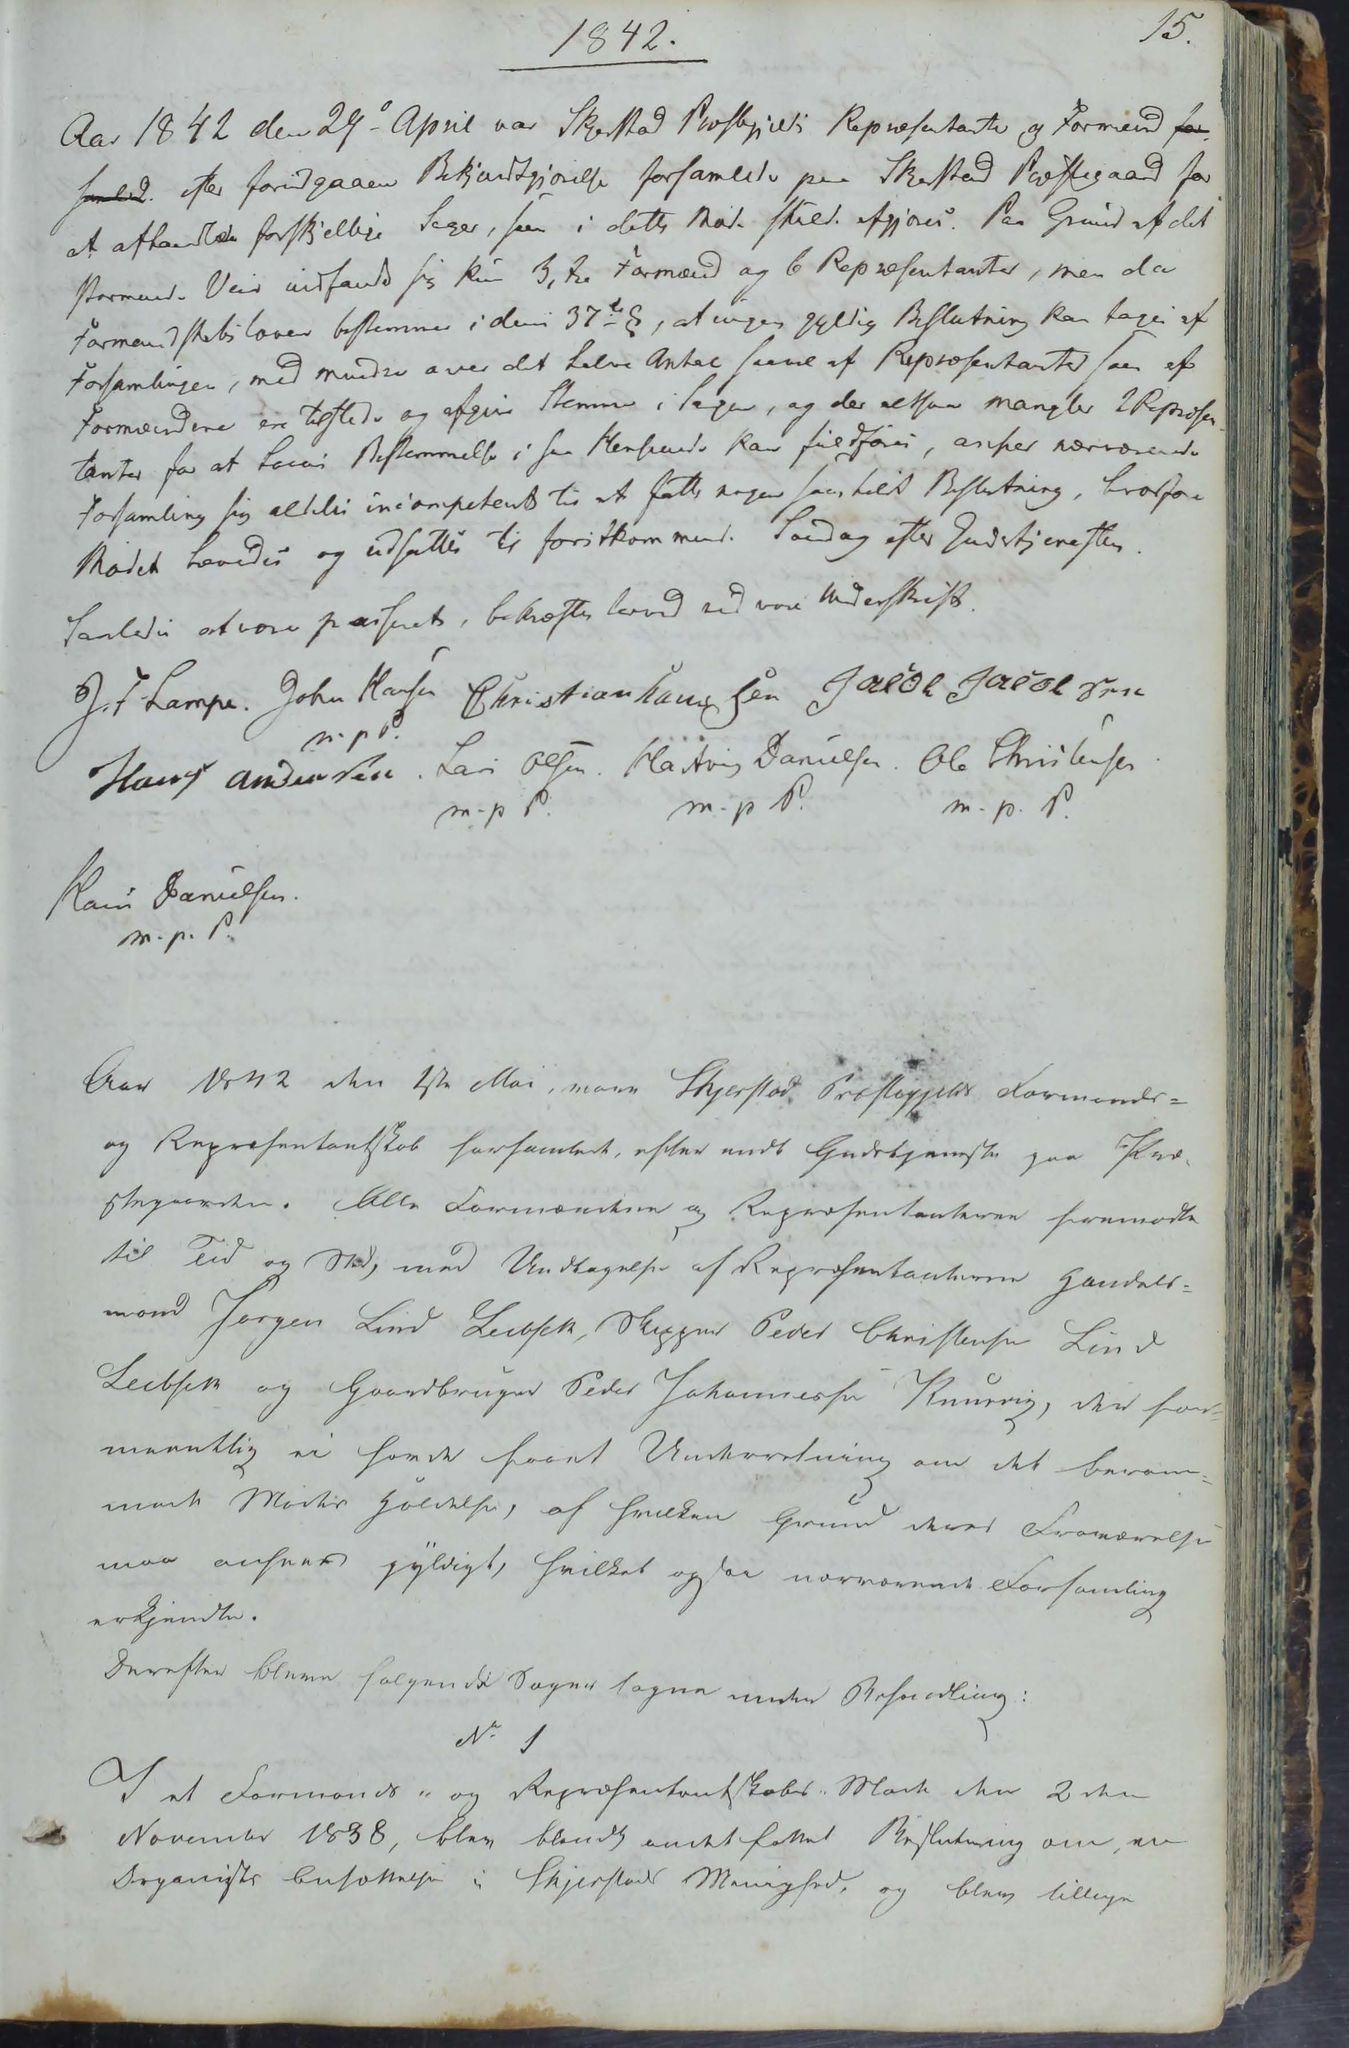 1842.
15.
Aar 1842 den 29de April var Skjerstad Præstegjelds Repræsentanter og Formænd for-
samled efter foridgaaen Bekjendtgjørelse forsamlede paa Skjerstad Præstegaard for
at afhandle forskjellige Sager, som i dette Møde skulde afgjøres. Paa Grund af det
stormende Veir indfandt sig kun 3, tre Formænd og 6 Repræsentanter, men da
Formandskabsloven bestemmer i dens 37te §, at ingen gyldig Beslutning kan tages af
Forsamlingen, med mindre over det halve Antal saavel af Repræsentanter som af
Formændene ere tilstede og afgive Stemme i Sagen, og der altsaa mangler 2 Repræsen-
tanter for at Lovens Bestemmelse i saa Henseende kan fuldføres, anseer nærværende
Forsamling sig aldeles incompetent til at fatte nogen saadan Beslutning, hvorfor
Mødet hævedes og udsattes til førstkommende Søndag efter Gudstjenesten.
Saaledes at være passeret, bekræftes herved ved vore Underskrift.
J. F. Lampe. John Hansen Christian Hansen Jacob Jacobsen
m. p. P.
Hans Andersen. Lars Olsen. Hartvig Danielsen. Ole Christensen.
m. p. P. m. p. P. m. p. P.
Hans Danielsen.
m. p. P.
Aar 1842 den 1ste Mai, vare Skjerstad Præstegjelds Formands=
og Repræsentantskab forsamlet, efter endt Gudstjeneste paa Præ-
stegaarden. Alle Formændene og Repræsentanterne fremmødte
til Tid og Sted, med Undtagelse af Repræsentanterne Handels=
mand Jørgen Lind Leibsek, Skipper Peder Christensen Lind
Leibsek og Gaardbruger Peder Johannessen Knurvig, der for=
meentlig ei havde faaet Underretning om det beram=
mede Mødes Holdelse, af hvilken Grund deres Fraværelse
maa ansees gyldigt, hvilket ogsaa nærværende Forsamling
erkjendte.
Derefter bleve følgende Sager tagne under Behandling:
No 1
I et Formands- og Repræsentantskabs-Møde den 2den
November 1838, blev blandt andet fattet Beslutning om, en
Organists Ansættelse i Skjerstad Menighed, og blev tillige